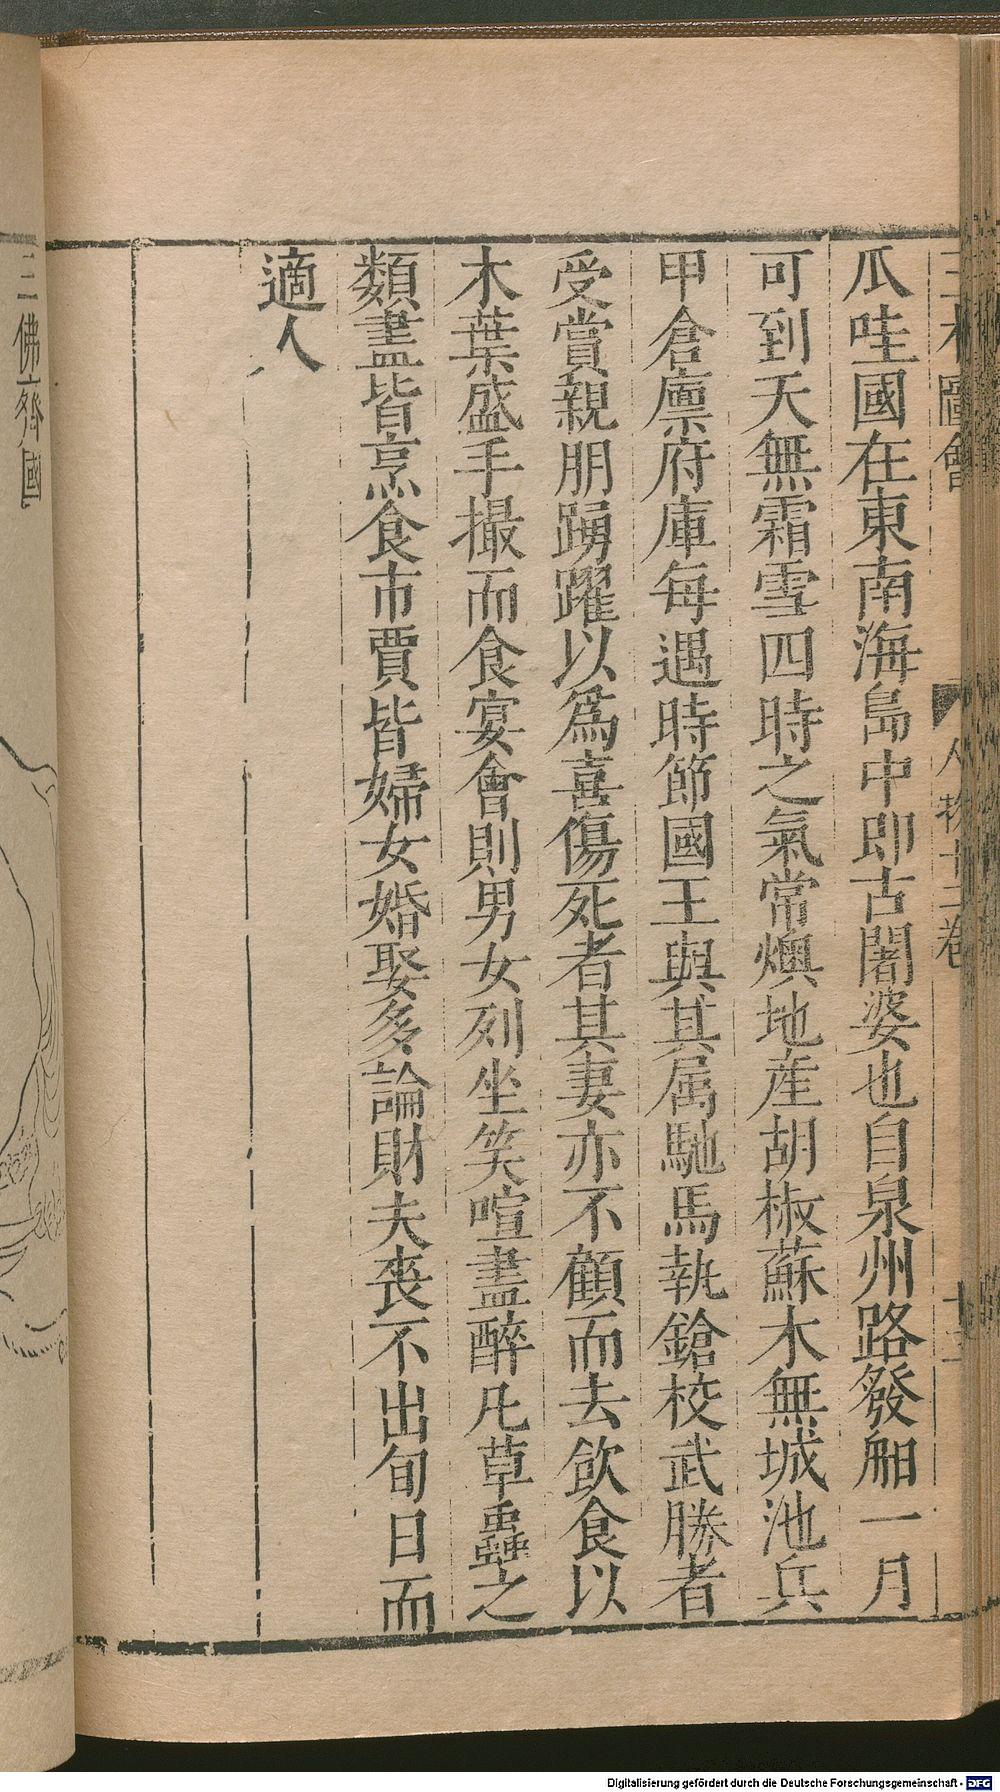 三才圖會 人物十三卷 十三
瓜哇國在東南海島中即古闍婆也自泉州路發船一月
可到天無霜雪四時之氣常燠地産胡椒蘇木無城池兵
甲倉廪府庫每遇時節國王與其属馳馬執鎗校武勝者
受賞親朋踴躍以爲喜傷死者其妻亦不顧而去飲食以
木葉盛手撮而食宴會則男女列坐笑喧盡醉凡草蟲之
類盡皆烹食市賈皆婦女婚娶多論財夫喪不出旬日而
適人
三佛齊國
Digitalisierung gefördert durch die Deutsche Forschungsgemeinschaft - DFG